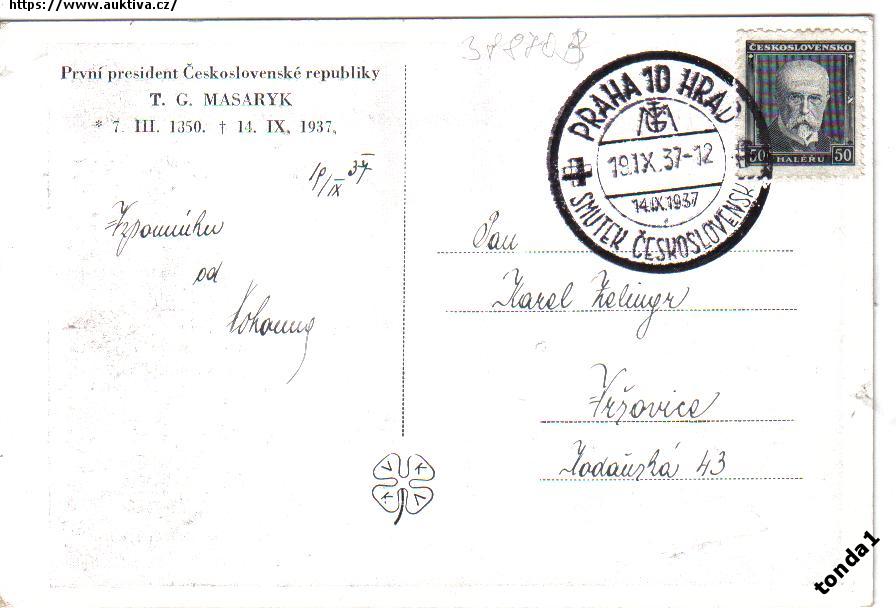 https://www.auktiva.cz/
První president Československé republiky
T. G. MASARYK
* 7. III. 1350. † 14. IX, 1937,
19/IX 37
Vzpomínku
od
PRAHA 10 HRAD
19.IX.37-12
14.IX.1937
SMUTEK ČESKOSLOVENSKA
ČESKOSLOVENSKO
50 HALÉŘŮ 50
Pan
Karel Zelingr
Vršovice
Kodaňská 43
V K
K V
tonda1